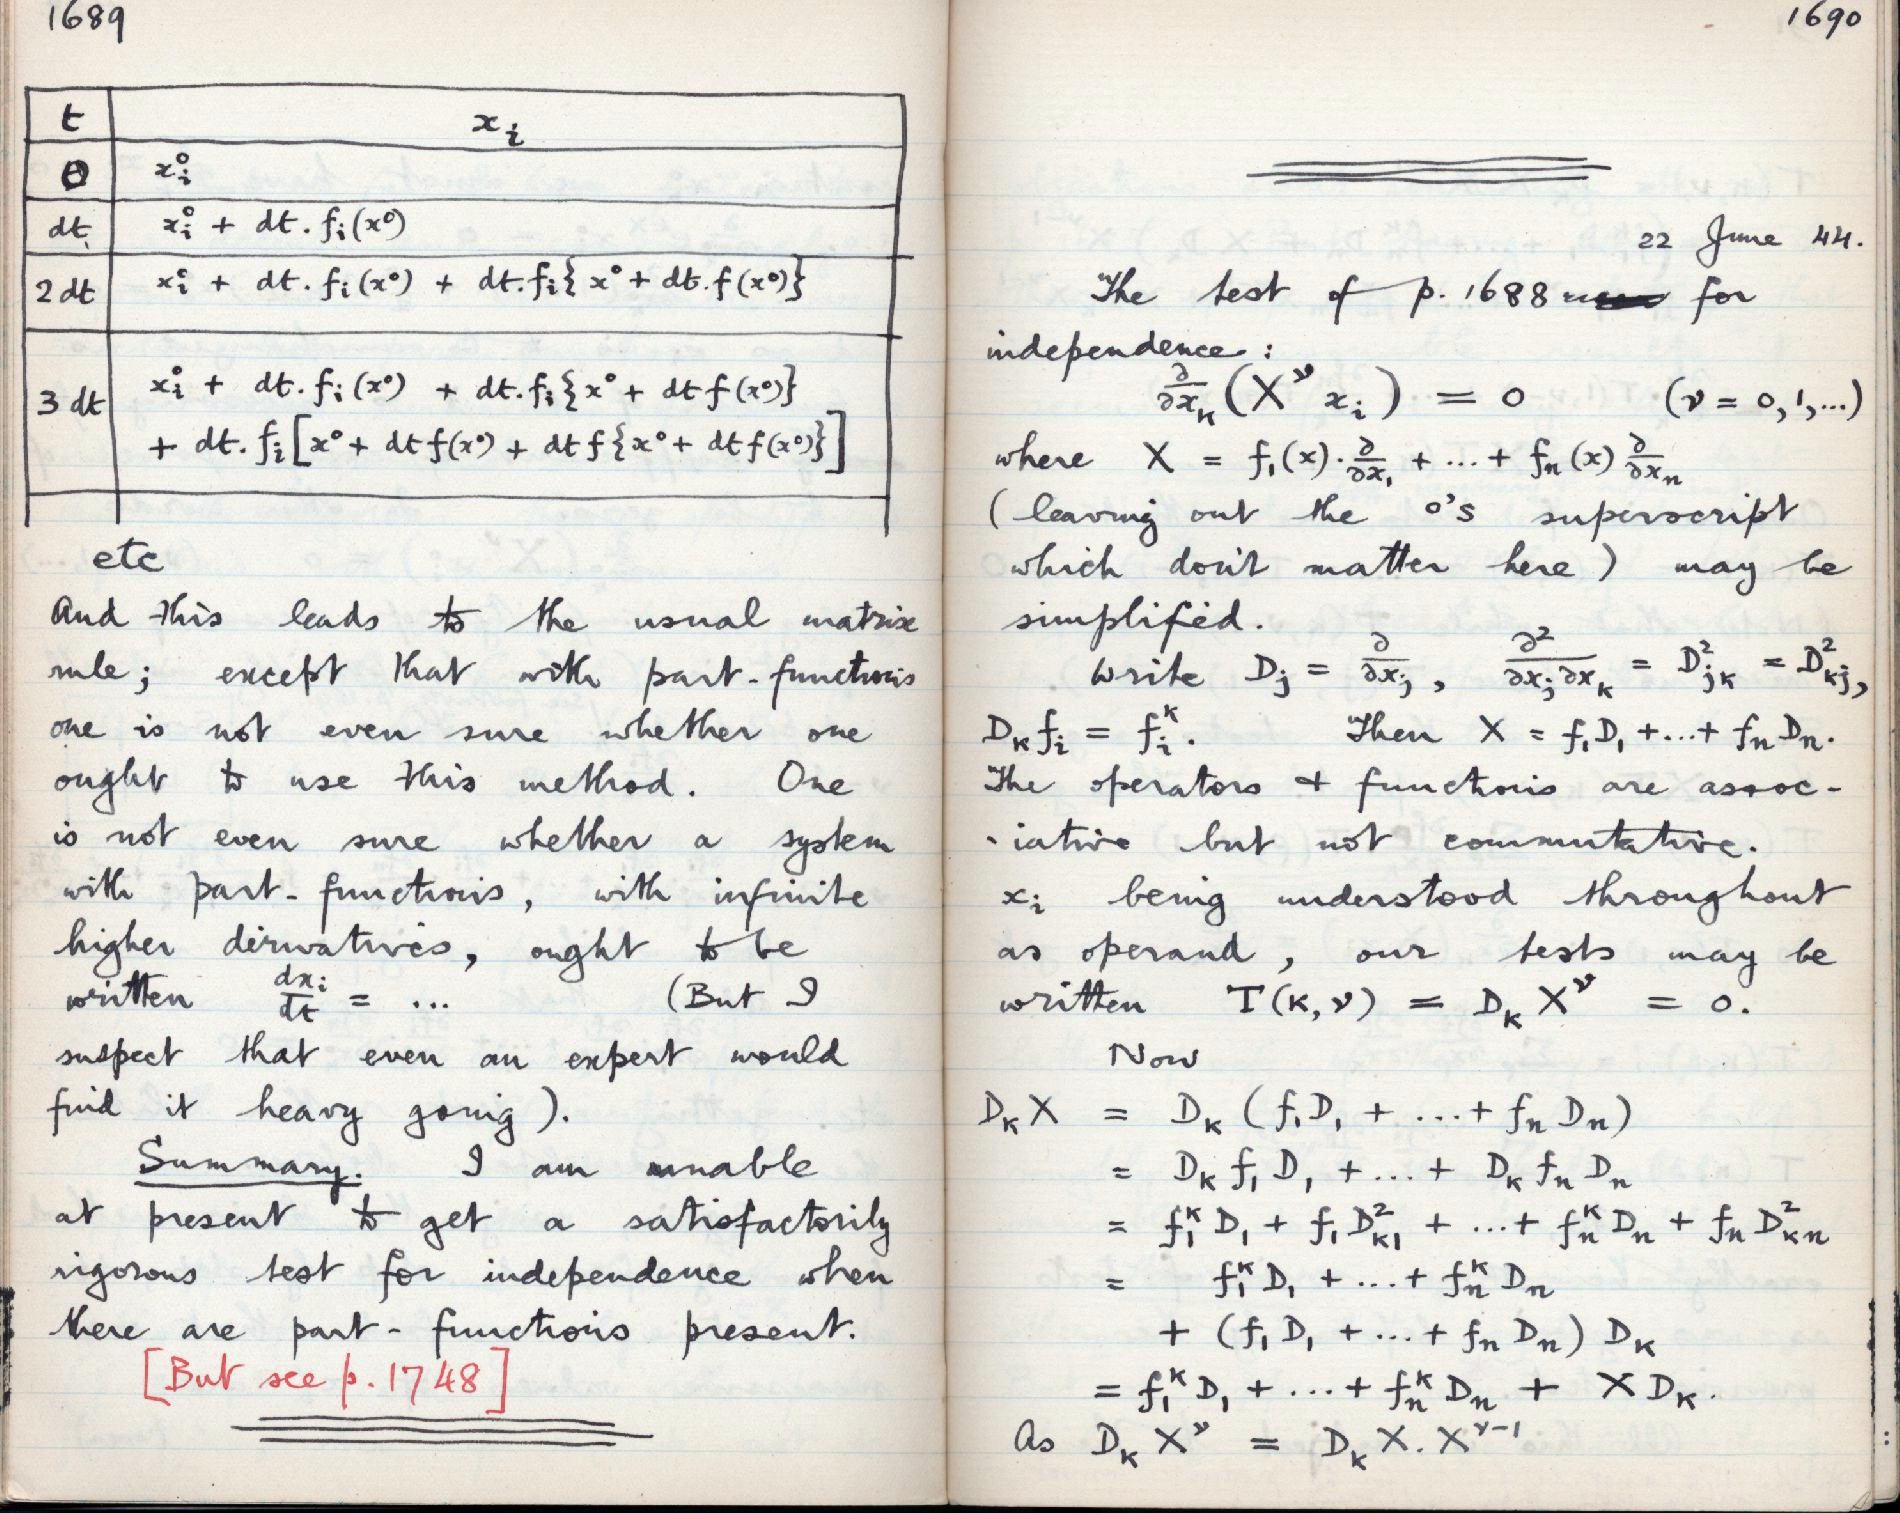 1689
t x_i
0 x_i°
dt x_i° + dt. f_i(x°)
2dt x_i° + dt. f_i(x°) + dt. f_i{x° + dt. f(x°)}
3dt x_i° + dt. f_i(x°) + dt. f_i{x° + dt f(x°)}
+ dt. f_i[x° + dt f(x°) + dt f{x° + dt f(x°)}]
etc
And this leads to the usual matrix
rule; except that with part-functions
one is not even sure whether one
ought to use this method. One
is not even sure whether a system
with part-functions, with infinite
higher derivatives, ought to be
written dx_i/dt = ... (But I
suspect that even an expert would
find it heavy going).
Summary. I am unable
at present to get a satisfactorily
rigorous test for independence when
there are part-functions present.
[But see p. 1748]
1690
22 June 44.
The test of p. 1688 for
independence:
∂/∂x_k (X^ν x_i) = 0 (ν = 0, 1, ...)
where X = f_1(x)·∂/∂x_1 + ... + f_n(x) ∂/∂x_n
(leaving out the o's superscript
which don't matter here) may be
simplified.
Write D_j = ∂/∂x_j, ∂²/∂x_j∂x_k = D²_jk = D²_kj,
D_k f_i = f_i^k. Then X = f_1D_1 + ... + f_nD_n.
The operators + functions are assoc-
-iative but not commutative.
x_i being understood throughout
as operand, our tests may be
written T(k, ν) = D_k X^ν = 0.
Now
D_k X = D_k (f_1D_1 + ... + f_nD_n)
= D_k f_1 D_1 + ... + D_k f_n D_n
= f_1^k D_1 + f_1 D²_k1 + ... + f_n^k D_n + f_n D²_kn
= f_1^k D_1 + ... + f_n^k D_n
+ (f_1 D_1 + ... + f_n D_n) D_k
= f_1^k D_1 + ... + f_n^k D_n + X D_k.
As D_k X^ν = D_k X. X^ν-1